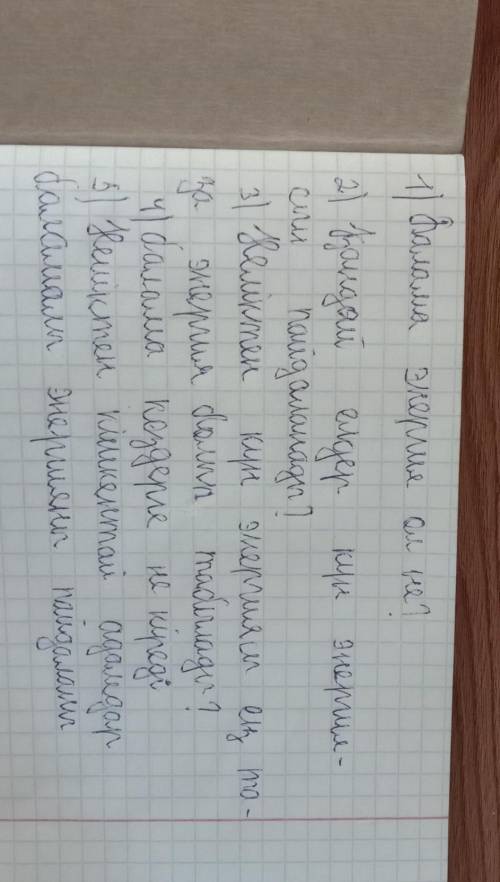 1) Балама энергия ол не?
2) Қандай елдер күн энергия-
сын пайдаланады?
3) Неліктен күн энергиясы ең та-
за энергия болып табылады?
4) балама көздерге не кіреді
5) Неліктен кішкентай адамдар
баламалы энергияны пайдаланы